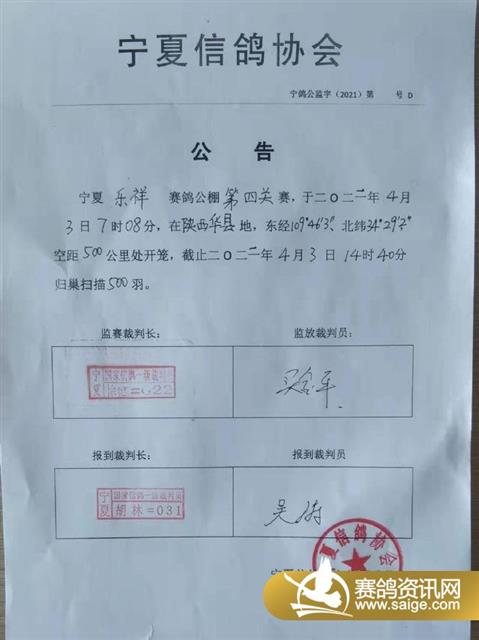 宁夏信鸽协会
宁鸽公监字（2021）第 号 D
公 告
宁夏 乐祥 赛鸽公棚 第四关 赛，于二0二二年 4月
3日7时08分，在陕西华县地，东经109°46′3″、北纬34°29′2″
空距500公里处开笼，截止二0二二年4月3日14时40分
归巢扫描500羽。
监赛裁判长： 监放裁判员：
宁夏 国家信鸽一级裁判员
=022
报到裁判长： 报到裁判员
宁夏 国家信鸽一级裁判员
胡林=031
吴涛
宁夏信鸽协会
赛鸽资讯网
www.saige.com